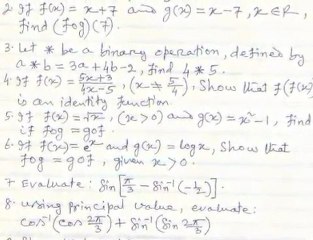 2. If f(x) = x+7 and g(x) = x-7, x∈R,
find (fog)(7)
3. Let * be a binary operation, defined by
a * b = 3a + 4b - 2, find 4 * 5.
4. If f(x) = (5x+3)/(4x-5), (x ≠ 5/4), Show that f(f(x))
is an identity function.
5. If f(x) = √x, (x>0) and g(x) = x²-1, find
if fog = gof.
6. If f(x) = eˣ and g(x) = log x, Show that
fog = gof, given x > 0.
7 Evaluate: Sin [π/3 - Sin⁻¹(-1/2)].
8. using principal value, evaluate:
cos⁻¹(cos 2π/3) + Sin⁻¹(Sin 2π/3)